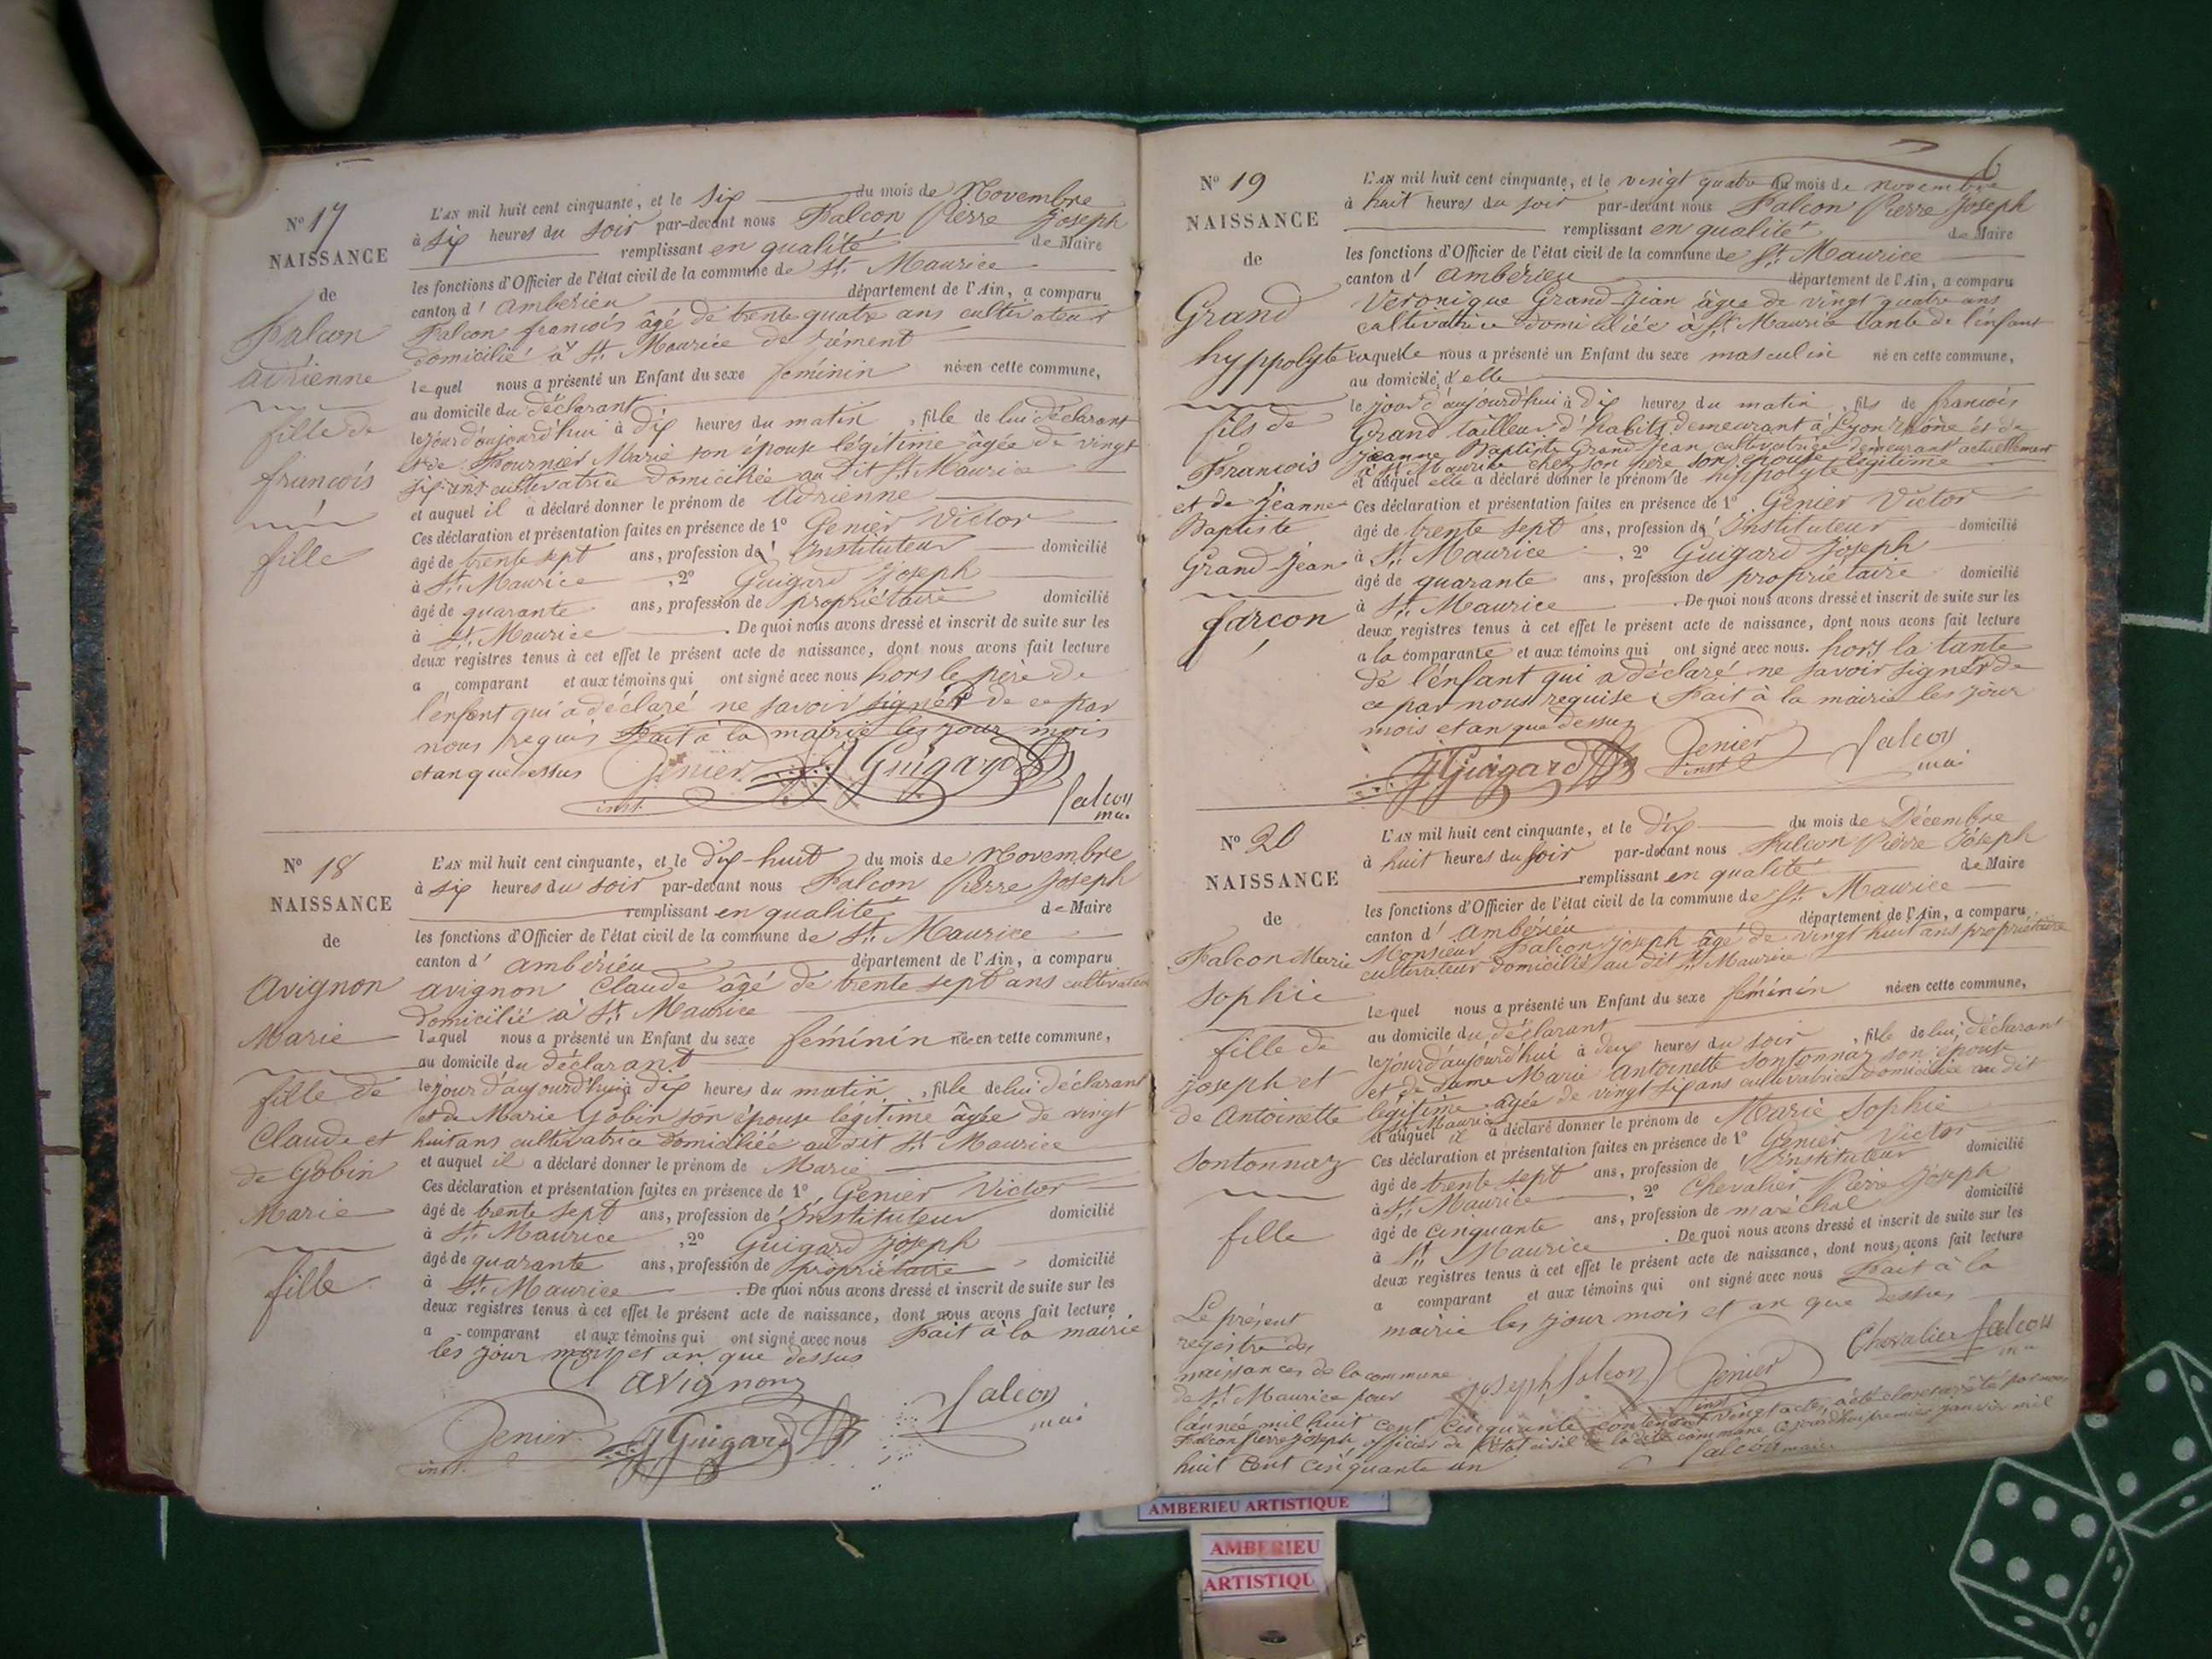 N° 17
NAISSANCE
de
Falcon
adrienne
fille de
francois
fille
L'AN mil huit cent cinquante, et le six du mois de Novembre
à six heures du soir par-devant nous Falcon Pierre Joseph
remplissant en qualité de Maire
les fonctions d'Officier de l'état civil de la commune de St. Maurice
canton d' Ambérieu département de l'Ain, a comparu
Falcon francois âgé de trente quatre ans cultivateur
domicilié à St. Maurice de rément
lequel nous a présenté un Enfant du sexe féminin né en cette commune,
au domicile du déclarant
le jour d'aujourd'hui à dix heures du matin, fille de lui déclarant
et de Fournier Marie son épouse légitime agée de vingt
six ans cultivatrice domiciliée au dit St. Maurice
et auquel il a déclaré donner le prénom de Adrienne
Ces déclaration et présentation faites en présence de 1° Genier Victor
âgé de trente sept ans, profession d' Instituteur domicilié
à St. Maurice, 2° Guigard Joseph
âgé de quarante ans, profession de propriétaire domicilié
à St. Maurice. De quoi nous avons dressé et inscrit de suite sur les
deux registres tenus à cet effet le présent acte de naissance, dont nous avons fait lecture
a comparant et aux témoins qui ont signé avec nous hors le père de
l'enfant qui a déclaré ne savoir signer de ce par
nous requis Fait à la mairie les jour mois
et an que dessus Genier J Guigard
inst. falcon
mai.
N° 18
NAISSANCE
de
Avignon
Marie
fille de
Claude et
de Gobin
Marie
fille
L'AN mil huit cent cinquante, et le dix-huit du mois de Novembre
à six heures du soir par-devant nous Falcon Pierre Joseph
remplissant en qualité de Maire
les fonctions d'Officier de l'état civil de la commune de St. Maurice
canton d' ambérieu département de l'Ain, a comparu
avignon Claude âgé de trente sept ans cultivateur
domicilié à St. Maurice
lequel nous a présenté un Enfant du sexe féminin née en cette commune,
au domicile du déclarant
le jour d'aujourd'hui à dix heures du matin, fille de lui déclarant
et de Marie Gobin son épouse légitime agée de vingt
huit ans cultivatrice domiciliée au dit St. Maurice
et auquel il a déclaré donner le prénom de Marie
Ces déclaration et présentation faites en présence de 1° Genier Victor
âgé de trente sept ans, profession d' Instituteur domicilié
à St. Maurice, 2° Guigard Joseph
âgé de quarante ans, profession de propriétaire domicilié
à St. Maurice. De quoi nous avons dressé et inscrit de suite sur les
deux registres tenus à cet effet le présent acte de naissance, dont nous avons fait lecture
a comparant et aux témoins qui ont signé avec nous Fait à la mairie
les jour mois et an que dessus
Cl avignon
Genier J Guigard falcon
inst. mai
6
N° 19
NAISSANCE
de
Grand
hyppolyte
fils de
Francois
et de Jeanne
Baptiste
Grand-Jean
garcon
L'AN mil huit cent cinquante, et le vingt quatre du mois de novembre
à huit heures du soir par-devant nous Falcon Pierre Joseph
remplissant en qualité de Maire
les fonctions d'Officier de l'état civil de la commune de St. Maurice
canton d' ambérieu département de l'Ain, a comparu
Veronique Grand-Jean âgée de vingt quatre ans
cultivatrice domiciliée à St. Maurice tante de l'enfant
laquelle nous a présenté un Enfant du sexe masculin né en cette commune,
au domicile d'elle
le jour d'aujourd'hui à dix heures du matin, fils de francois
Grand tailleur d'habits demeurant à Lyon rhône et de
Jeanne Baptiste Grand-Jean cultivatrice demeurant actuellement
à St. Maurice chez son père son épouse légitime
et auquel elle a déclaré donner le prénom de hippolyte
Ces déclaration et présentation faites en présence de 1° Genier Victor
âgé de trente sept ans, profession d' Instituteur domicilié
à St. Maurice, 2° Guigard Joseph
âgé de quarante ans, profession de propriétaire domicilié
à St. Maurice. De quoi nous avons dressé et inscrit de suite sur les
deux registres tenus à cet effet le présent acte de naissance, dont nous avons fait lecture
a la comparante et aux témoins qui ont signé avec nous. hors la tante
de l'enfant qui a déclaré ne savoir signer de
ce par nous requise. Fait à la mairie les jour
mois et an que dessus
J Guigard Genier falcon
inst mai
N° 20
NAISSANCE
de
Falcon Marie
Sophie
fille de
joseph et
de Antoinette
Sontonnaz
fille
L'AN mil huit cent cinquante, et le dix du mois de Décembre
à huit heures du soir par-devant nous Falcon Pierre Joseph
remplissant en qualité de Maire
les fonctions d'Officier de l'état civil de la commune de St. Maurice
canton d' ambérieu département de l'Ain, a comparu
Monsieur Falcon joseph âgé de vingt huit ans propriétaire
cultivateur domicilié au dit St. Maurice
lequel nous a présenté un Enfant du sexe féminin née en cette commune,
au domicile du déclarant
le jour d'aujourd'hui à deux heures du soir, fille de lui, déclarant
et de dame Marie Antoinette Sontonnaz son épouse
légitime agée de vingt six ans cultivatrice domiciliée au dit
St. Maurice
et auquel il a déclaré donner le prénom de Marie Sophie
Ces déclaration et présentation faites en présence de 1° Genier Victor
âgé de trente sept ans, profession d' Instituteur domicilié
à St. Maurice, 2° Chevalier Pierre Joseph
âgé de cinquante ans, profession de maréchal domicilié
à St. Maurice. De quoi nous avons dressé et inscrit de suite sur les
deux registres tenus à cet effet le présent acte de naissance, dont nous avons fait lecture
a comparant et aux témoins qui ont signé avec nous Fait à la
mairie les jour mois et an que dessus
joseph falcon Genier Chevalier falcon
inst ma
Le présent
registre des
naissances de la commune
de St. Maurice pour
l'année mil huit cent cinquante contenant vingt actes, a été clos et arrêté par nous
Falcon Pierre Joseph, officier de l'état civil de la dite commune, ce jourd'hui premier janvier mil
huit cent cinquante un falcon maire
AMBERIEU ARTISTIQUE
AMBERIEU
ARTISTIQU